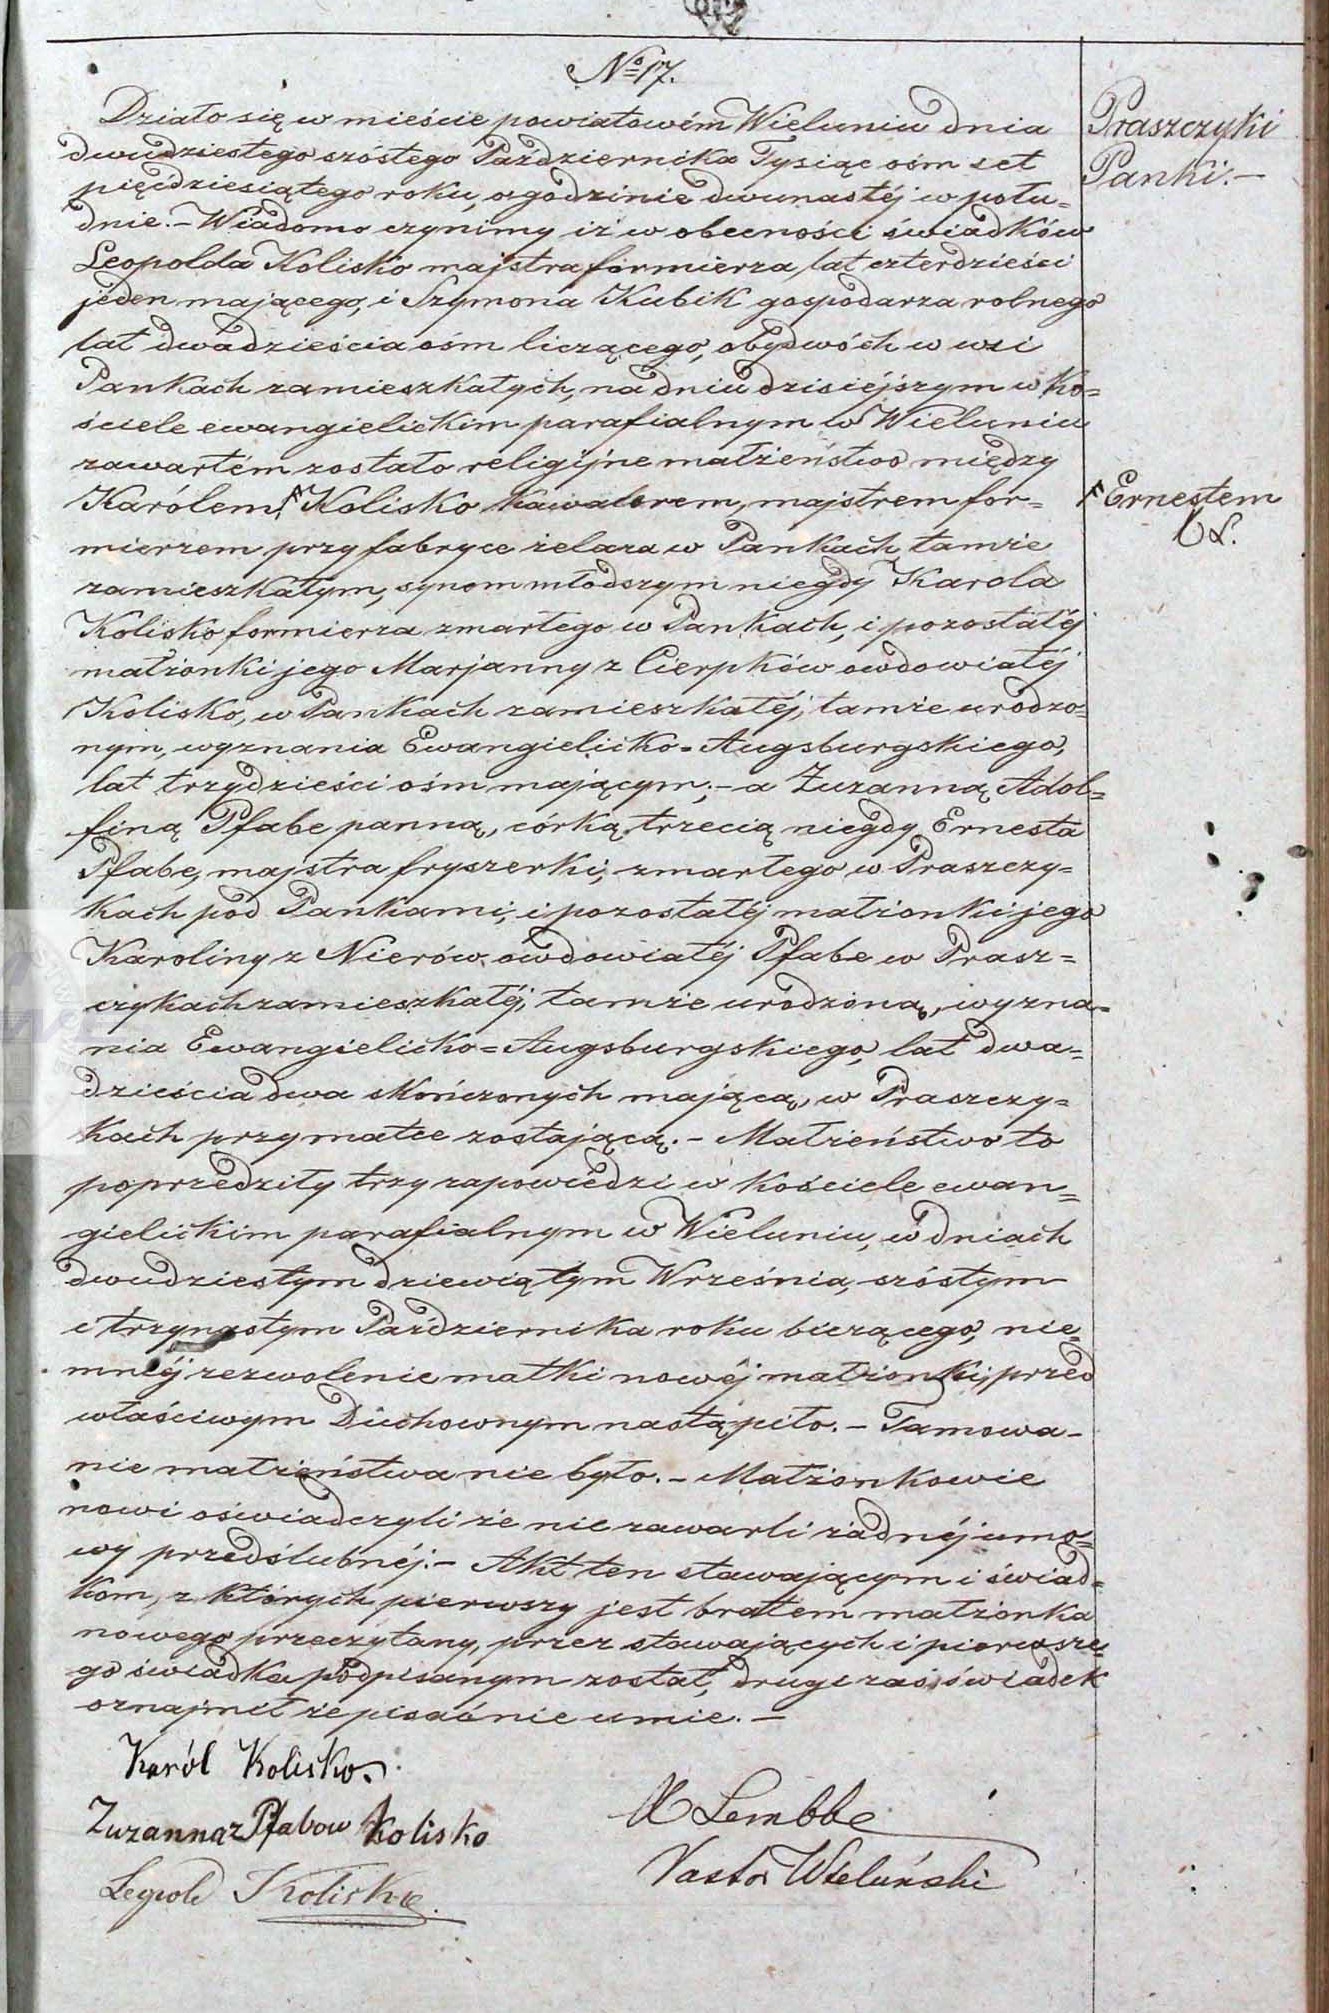 № 17.
Praszczyki
Panki.–
Działo się w mieście powiatowém Wieluniu dnia
dwudziestego szóstego Października Tysiąc ośm set
pięćdziesiątego roku, o godzinie dwunastéj w połu=
dnie.– Wiadomo czynimy iż w obecności świadków
Leopolda Kolisko majstra formierza, lat czterdzieści
jeden mającego, i Szymona Kubik gospodarza rolnego
lat dwadzieścia ośm liczącego, obydwóch w wsi
Pankach zamieszkałych, na dniu dzisiéjszym w Ko=
ściele ewangielickim parafialnym w Wieluniu
zawartém zostało religijne małżeństwo między
Karólem ⌜ Kolisko kawalerem, majstrem for=
⌜ Ernestem
mierzem przy fabryce żelaza w Pankach tamże
zamieszkałym, synom młodszym niegdy Karola
Kolisko formierza zmarłego w Pankach, i pozostałéj
małżonki jego Marjanny z Cierpków owdowiałéj
Kolisko, w Pankach zamieszkałéj, tamże urodzo=
nym, wyznania Ewangielicko=Augsburgskiego,
lat trzydzieści ośm mającym;– a Zuzanną Adol=
finą Pfabe panną, córką trzecią niegdy Ernesta
Pfabe, majstra fryszerki, zmarłego w Praszczy=
kach pod Pankami, i pozostałéj małżonki jego
Karoliny z Nierów owdowiałéj Pfabe w Prasz=
czykach zamieszkałéj, tamże urodzoną, wyzna=
nia Ewangielicko=Augsburgskiego, lat dwa=
dzieścia dwa skończonych mającą, w Praszczy=
kach przy matce zostającą.– Małżeństwo to
poprzedziły trzy zapowiedzi w kościele ewan=
gielickim parafialnym w Wieluniu, w dniach
dwudziestym dziewiątym Września, szóstym
i trzynastym Października roku bieżącego, nie=
mniéj zezwolenie matki nowéj małżonki, przed
właściwym Duchownym nastąpiło.– Tamowa–
nie małżeństwa nie było.– Małżonkowie
nowi oświadczyli że nie zawarli żadnéj umo=
wy przedślubnéj.– Akt ten stawającym i świad=
kom, z których pierwszy jest bratem małżonka
nowego przeczytany, przez stawających i pierwsze=
go świadka podpisanym został, drugi zaś świadek
oznajmił że pisać nie umie.–
Karól Kolisko.
Zuzanna z Pfabow Kolisko
Leopold Kolisko.
Lembke
Pastor Wieluński